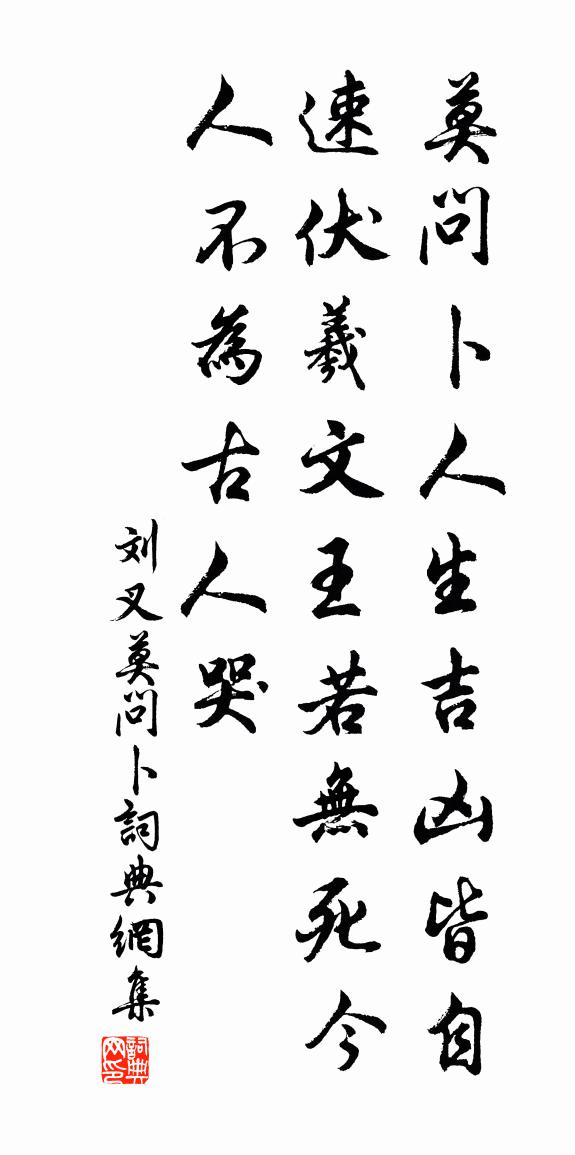 莫問卜人生吉凶皆自
速伏羲文王若無死今
人不為古人哭
刘叉莫問卜詞典網集
詞典网印